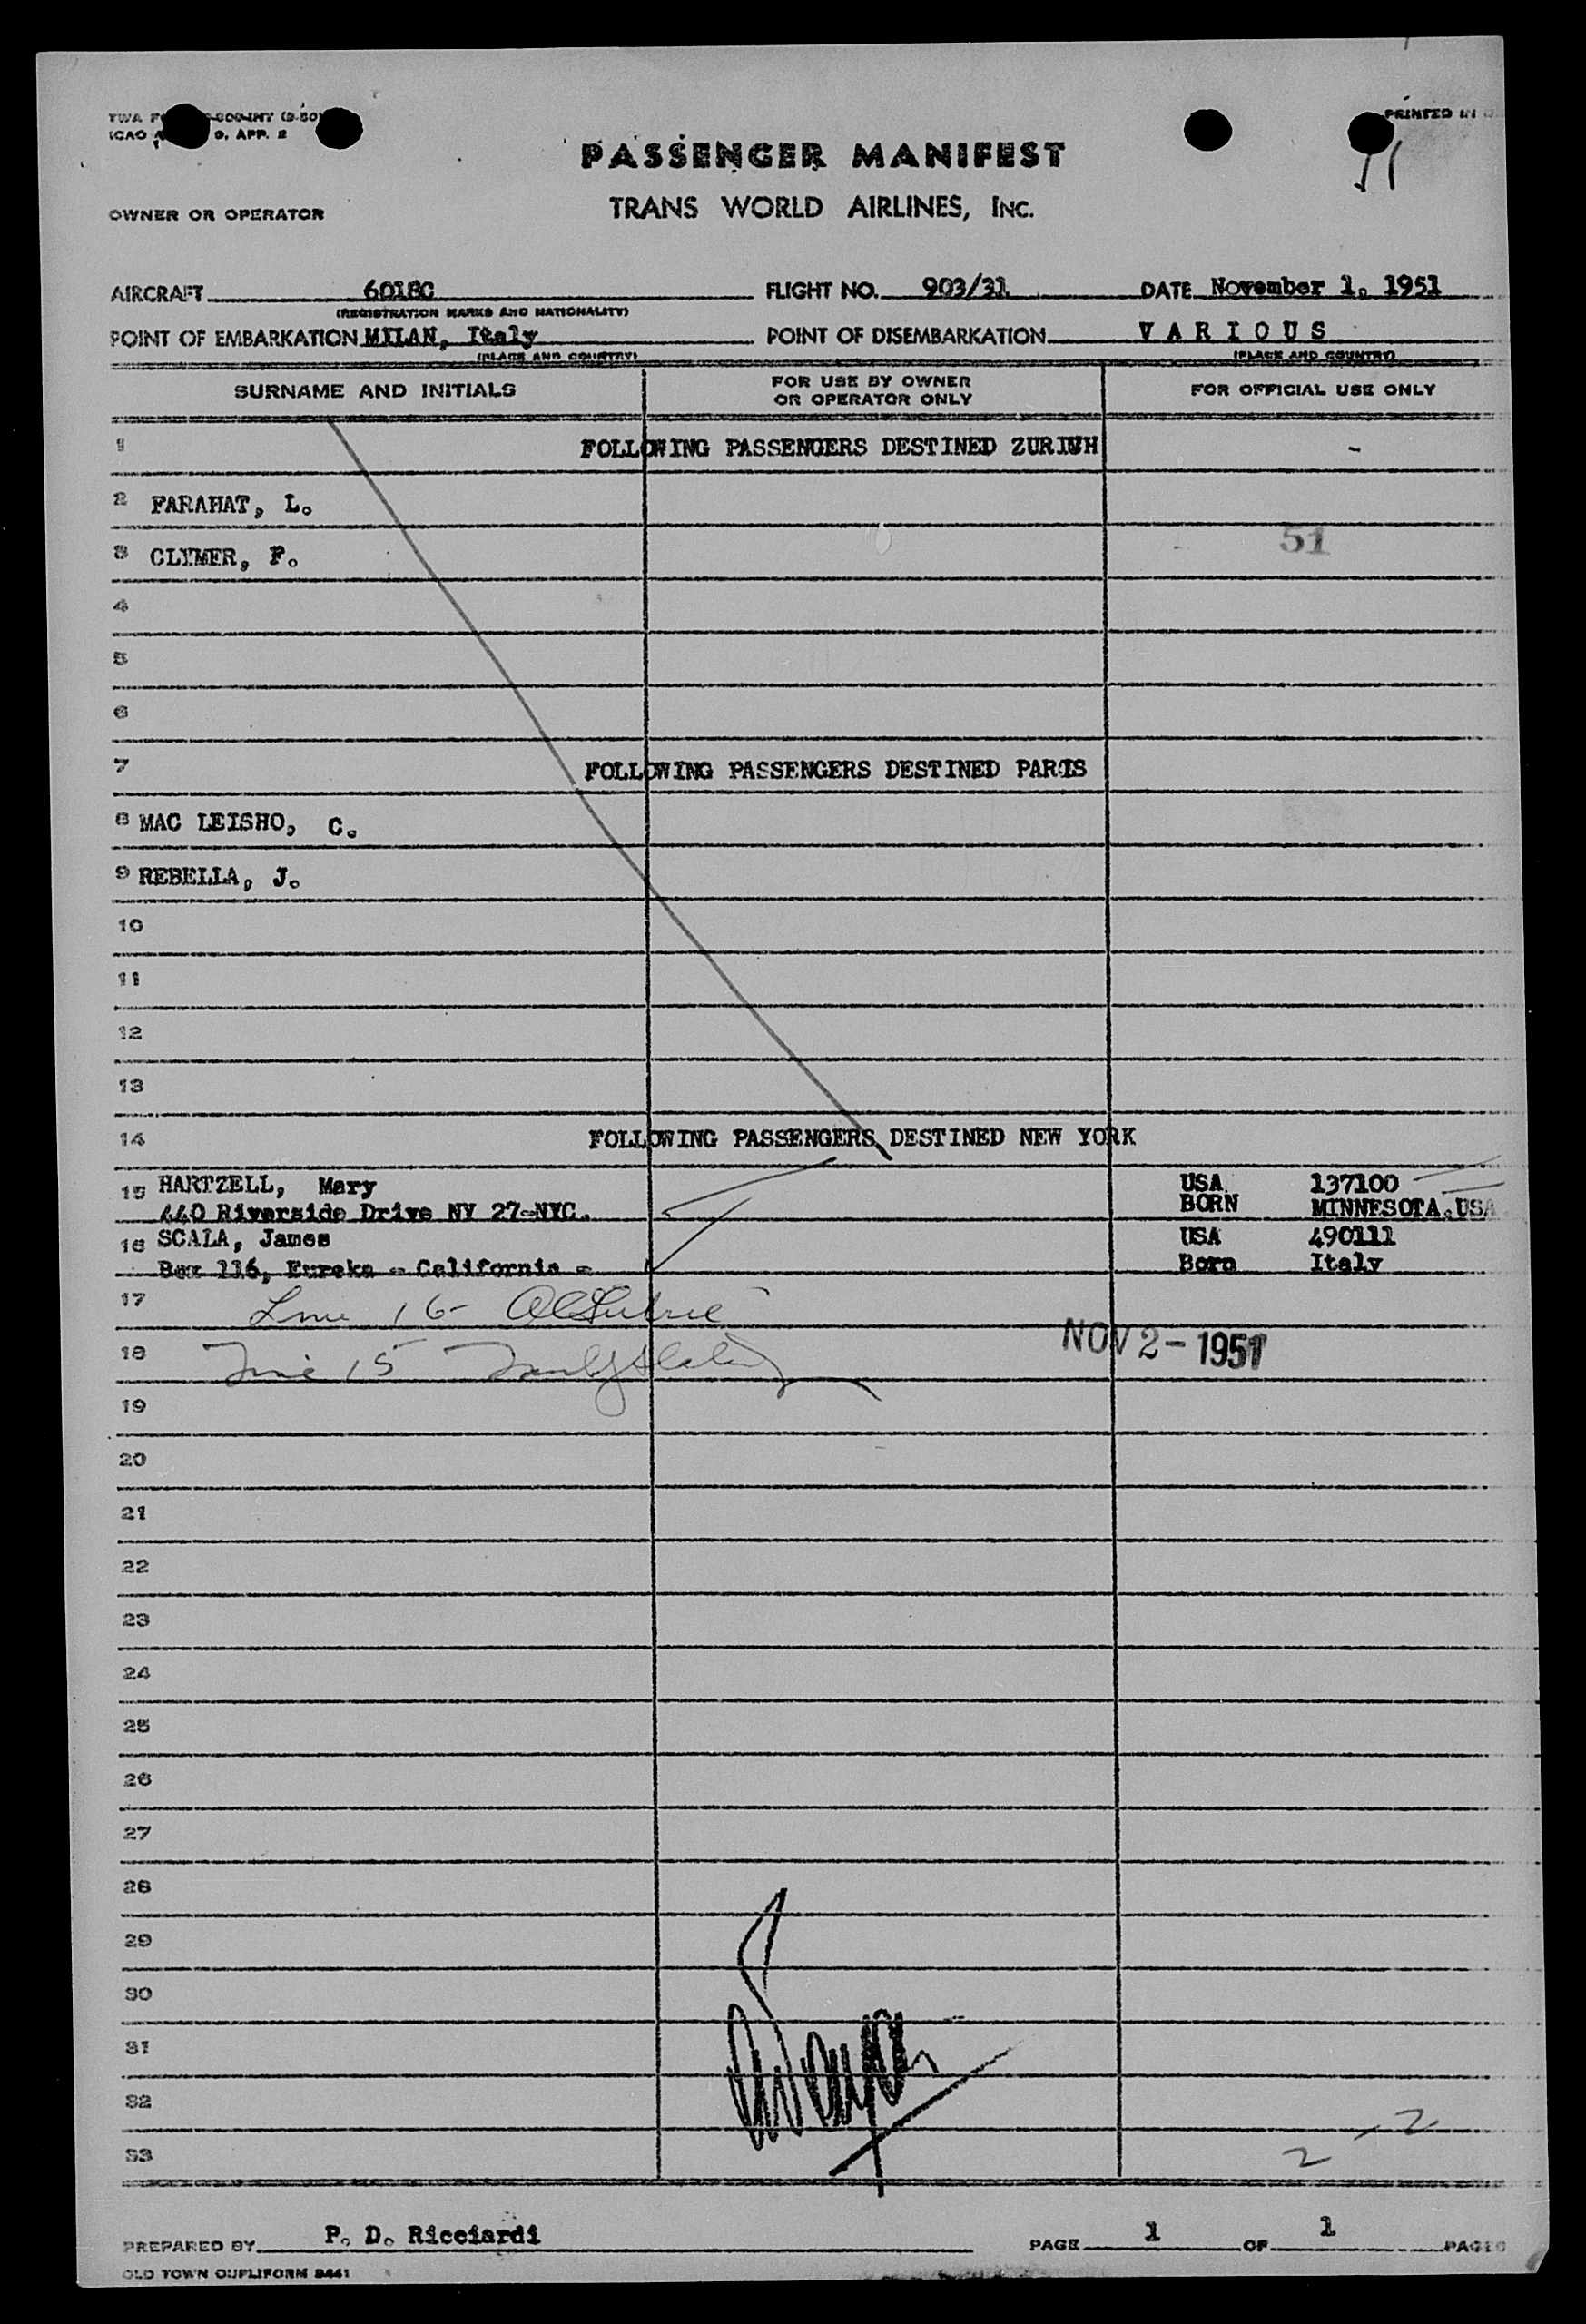 PRINTED IN
ICAO 9, APP. 2
PASSENGER MANIFEST
OWNER OR OPERATOR
TRANS WORLD AIRLINES, INC.
AIRCRAFT 6018C FLIGHT NO. 903/31 DATE November 1, 1951
(REGISTRATION MARKS AND NATIONALITY)
POINT OF EMBARKATION MILAN, Italy POINT OF DISEMBARKATION V A R I O U S
(PLACE AND COUNTRY) (PLACE AND COUNTRY)
SURNAME AND INITIALS FOR USE BY OWNER OR OPERATOR ONLY FOR OFFICIAL USE ONLY
1 FOLLOWING PASSENGERS DESTINED ZURICH -
2 FARAHAT, L.
51
3 CLYMER, F.
4
5
6
7 FOLLOWING PASSENGERS DESTINED PARIS
8 MAC LEISHO, C.
9 REBELLA, J.
10
11
12
13
14 FOLLOWING PASSENGERS DESTINED NEW YORK
15 HARTZELL, Mary USA 137100
440 Riverside Drive NY 27-NYC. BORN MINNESOTA.USA
16 SCALA, James USA 490111
Box 116, Eureka - California - Born Italy
17 Line 16-
18 Line 15 NOV 2 - 1951
19
20
21
22
23
24
25
26
27
28
29
30
31
32
2
33 2
PREPARED BY P. D. Ricciardi PAGE 1 OF 1 PAGES
OLD TOWN DUPLIFORM 8441